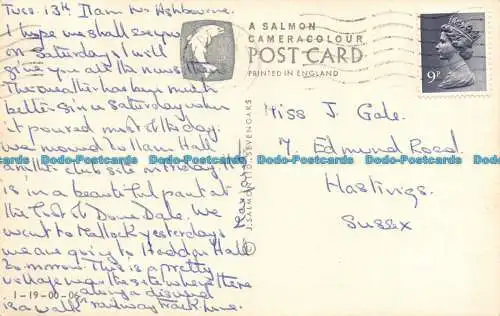 Tues. 13th Ilam Nr Ashbourne.
I hope we shall see you
on Saturday & I will
give you all the news then
The weather has been much
better since Saturday when
it poured most of the day.
We moved to Ilam Hall
another club site on Monday. It
is in a beautiful part at
the foot of Dove Dale. We
went to Matlock yesterday &
we are going to Haddon Hall
to-morrow. This is a pretty
village near the site where there
is a walk along a disused
railway track.
1-19-00-06
J. SALMON LTD., SEVENOAKS ©
A SALMON
CAMERACOLOUR
POST CARD
PRINTED IN ENGLAND
9P
Miss J. Gale.
7, Edmund Road.
Hastings.
Sussex
Dodo-Postcards Dodo-Postcards Dodo-Postcards Dodo-Postcards